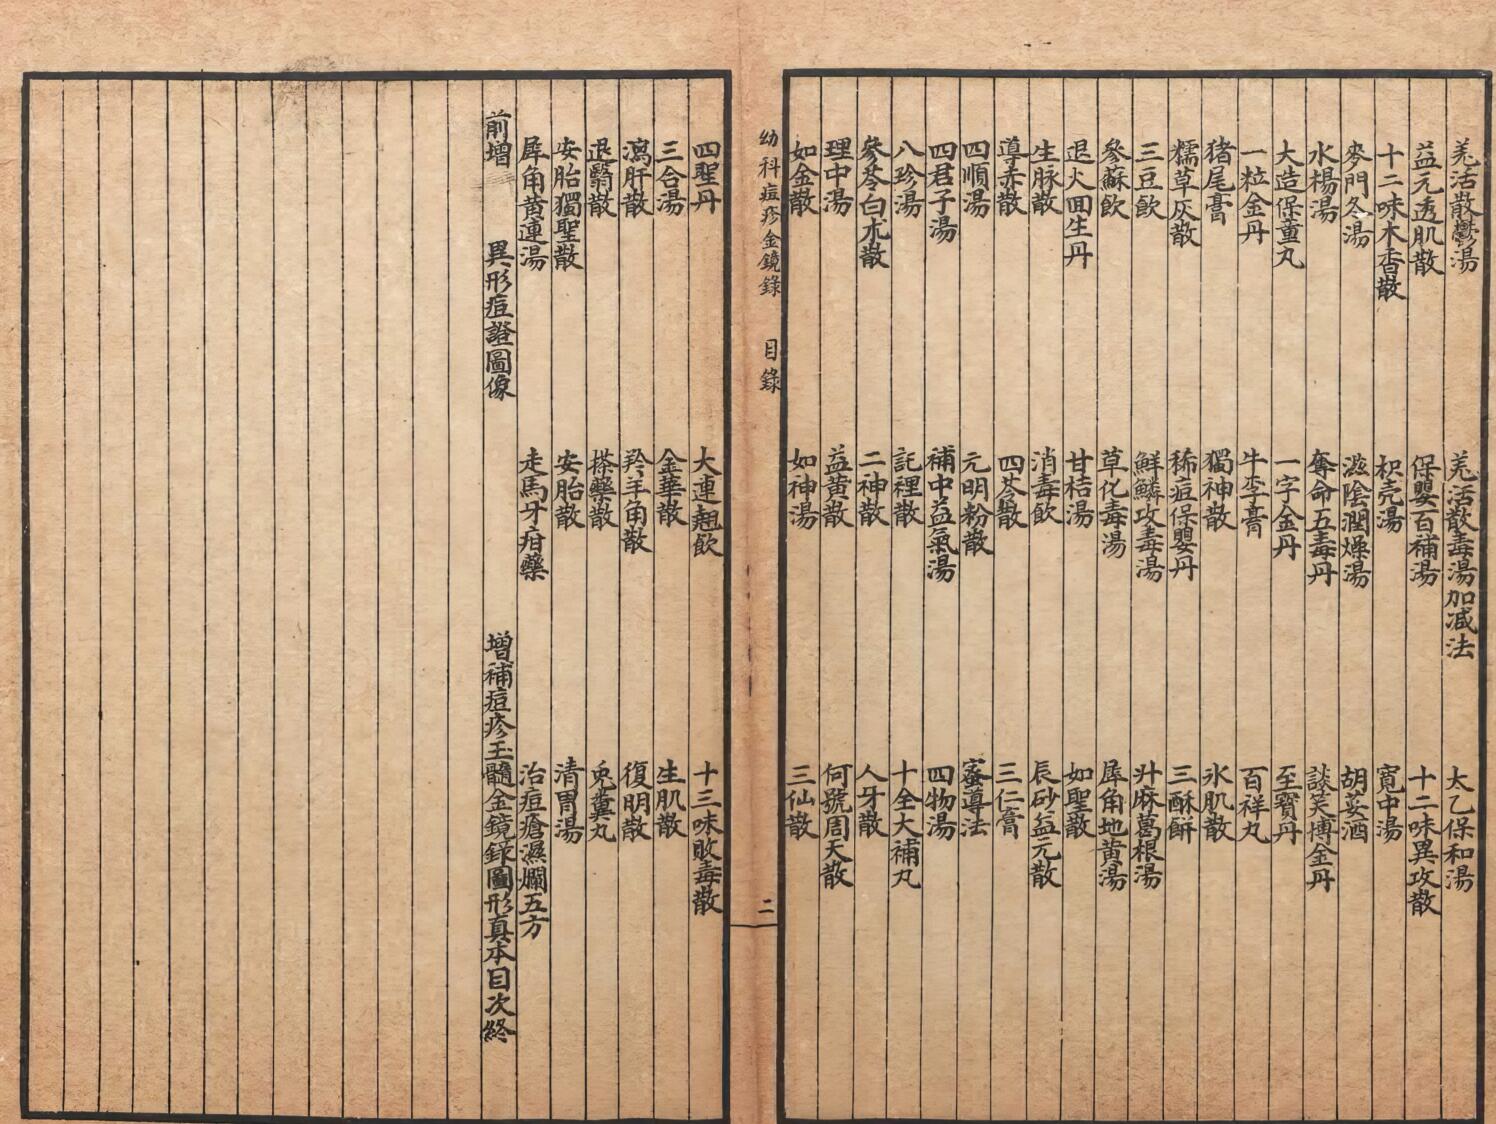 羗活散鬱湯　羗活散毒湯加减法　太乙保和湯
益元透肌散　保嬰百補湯　十二味異攻散
十二味木香散　枳壳湯　寛中湯
麥門冬湯　滋陰潤燥湯　胡荽酒
水楊湯　奪命五毒丹　談笑博金丹
大造保童丸　一字金丹　至寳丹
一粒金丹　牛李膏　百祥丸
猪尾膏　獨神散　氷肌散
糯草灰散　稀痘保嬰丹　三酥餅
三豆飲　鮮鱗攻毒湯　升麻葛根湯
參蘇飲　草化毒湯　犀角地黄湯
退火回生丹　甘桔湯　如聖散
生脉散　消毒飲　辰砂益元散
導赤散　四苓散　三仁膏
四順湯　元明粉散　蜜導法
四君子湯　補中益氣湯　四物湯
八珍湯　託裡散　十全大補丸
參苓白朮散　二神散　人牙散
理中湯　益黄散　何號周天散
如金散　如神湯　三仙散
幼科痘疹金鏡錄　目錄　二
四聖丹　大連翹飲　十三味敗毒散
三合湯　金華散　生肌散
瀉肝散　羚羊角散　復明散
退翳散　搽藥散　兎糞丸
安胎獨聖散　安胎散　清胃湯
犀角黄連湯　走馬牙疳藥　治痘瘡濕爛五方
前增　異形痘證圖像　增補痘疹玉髓金鏡録圖形真本目次終